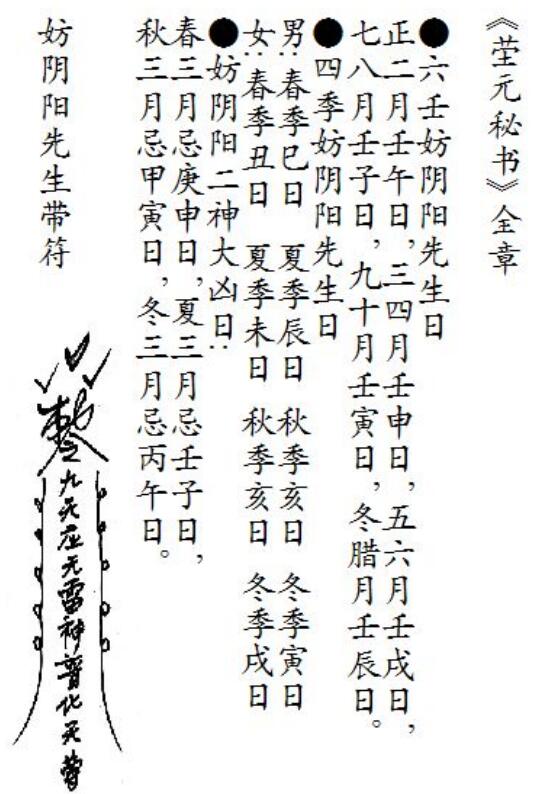 《茔元秘书》全章
●六壬妨阴阳先生日
正二月壬午日，三四月壬申日，五六月壬戌日，
七八月壬子日，九十月壬寅日，冬腊月壬辰日。
●四季妨阴阳先生日
男：春季巳日 夏季辰日 秋季亥日 冬季寅日
女：春季丑日 夏季未日 秋季亥日 冬季戌日
●妨阴阳二神大凶日：
春三月忌庚申日，夏三月忌壬子日，
秋三月忌甲寅日，冬三月忌丙午日。
妨阴阳先生带符
九天应元雷神普化天尊